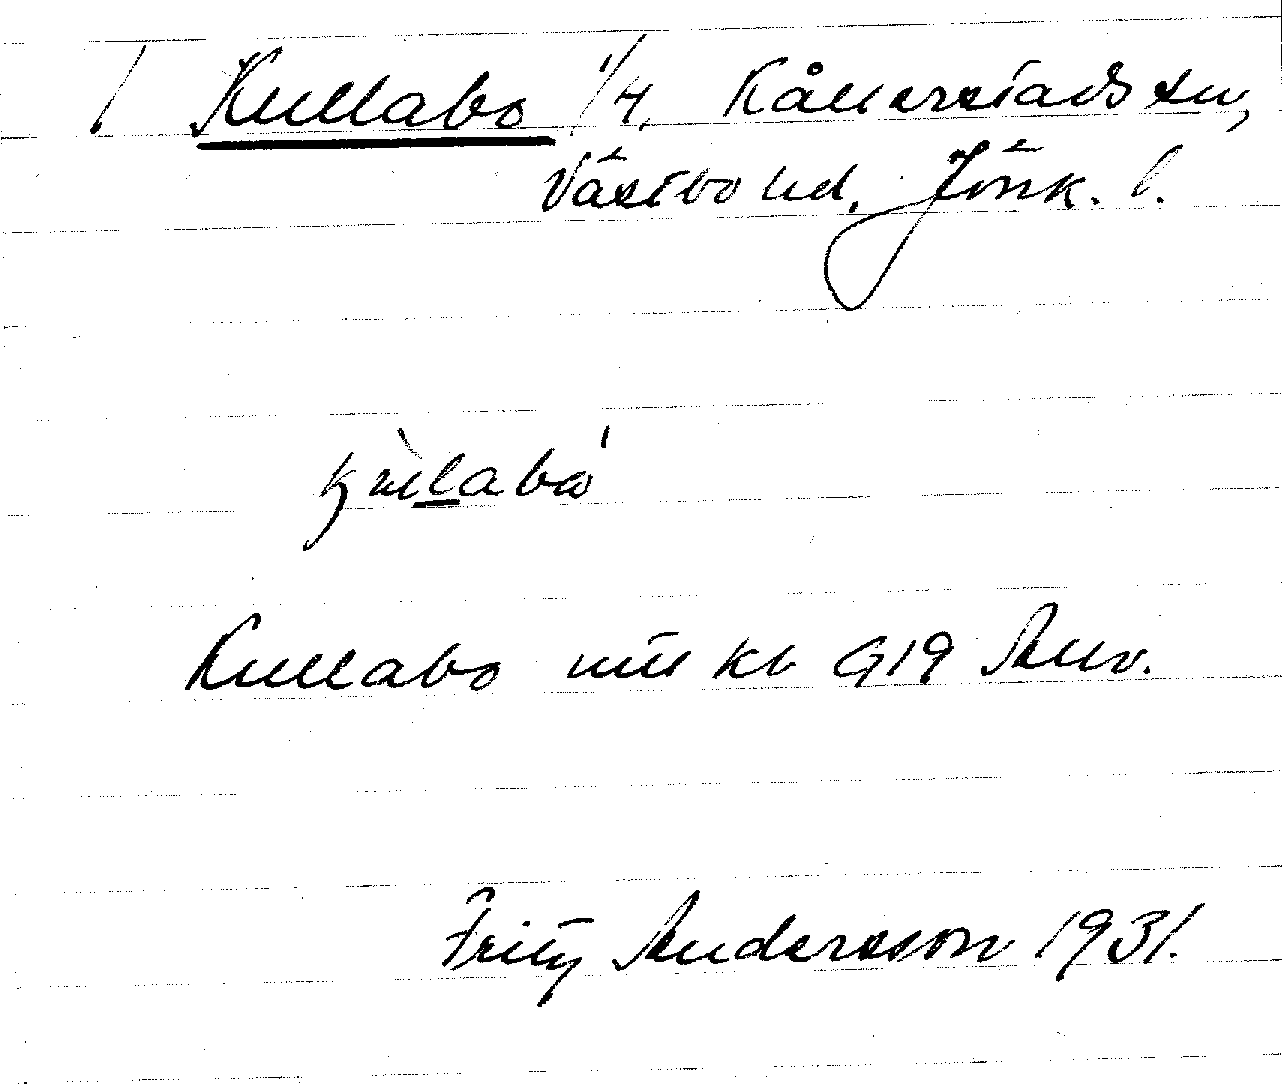 / Kullabo 1/4, Kållerstads sn,
Västbo hd. Jönk. l.
Kullabo mtl kb 919 Anv.
Fritz Andersson 1931.